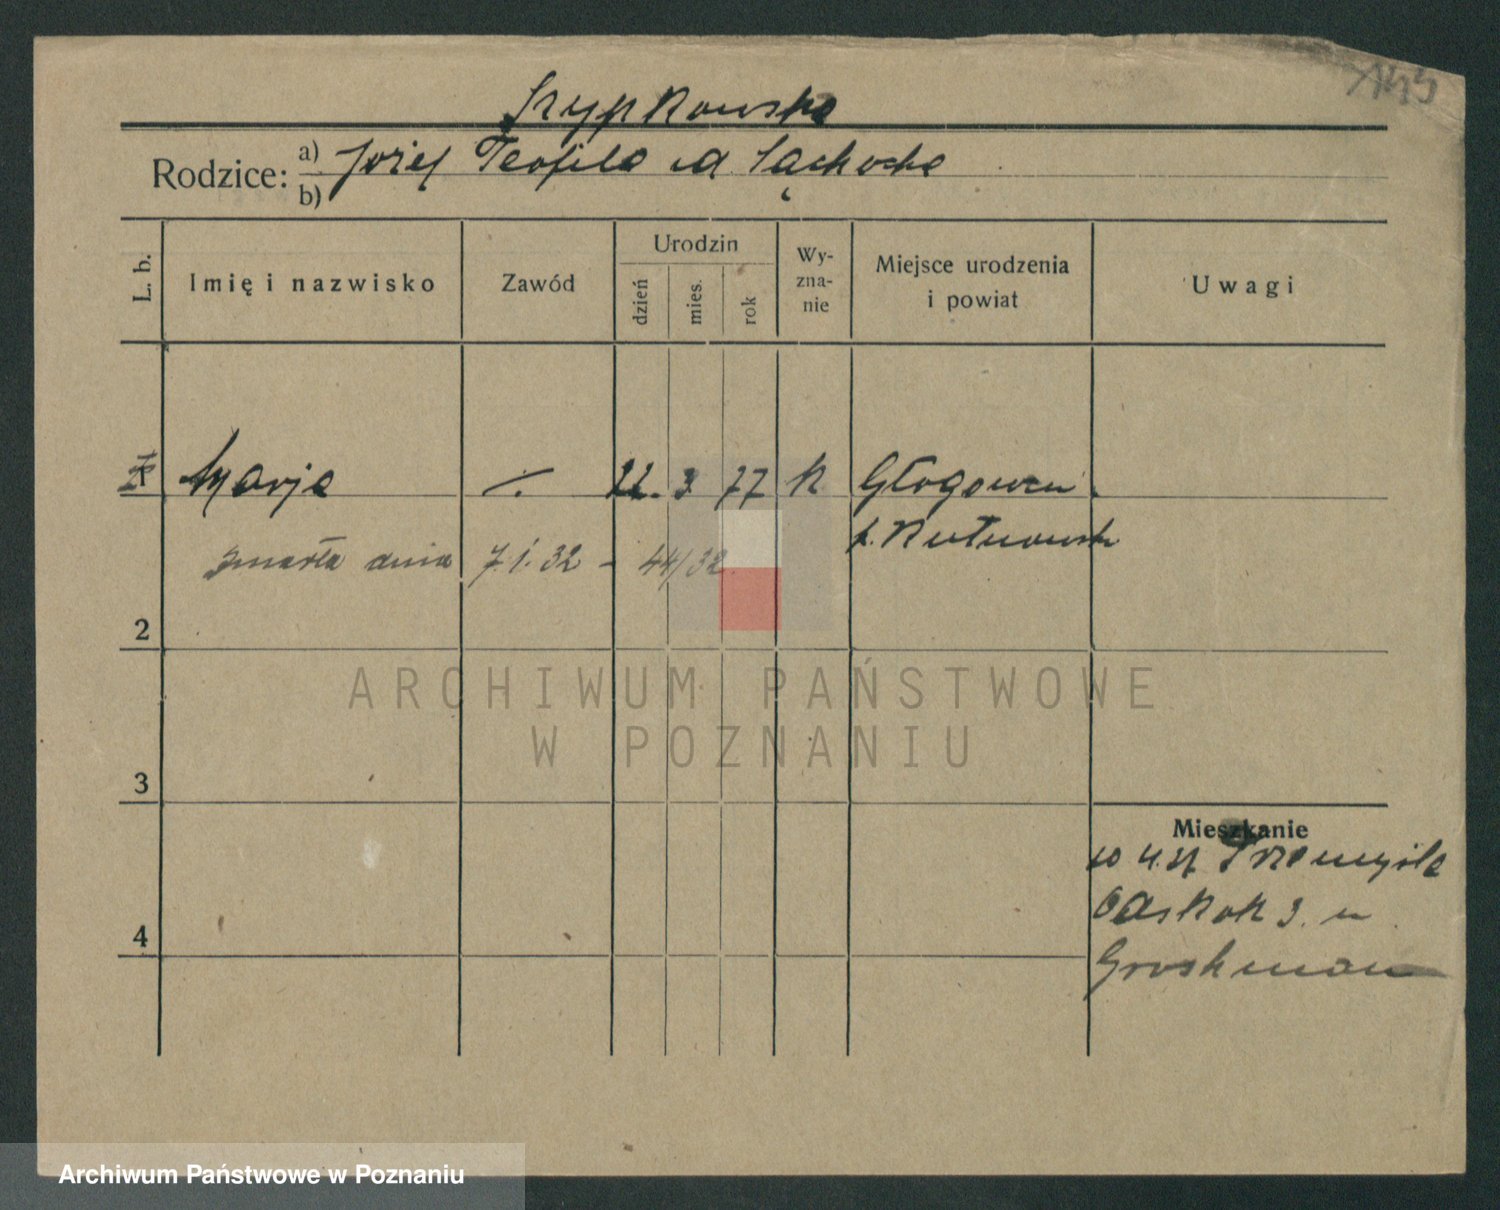 145
Szypkowska
Rodzice: a) Józef Teofila z d. Sąchocka
b)
L. b.
Imię i nazwisko
Zawód
Urodzin
dzień
mies.
rok
Wy-
zna-
nie
Miejsce urodzenia
i powiat
Uwagi
1 Marja 22. 3 77 K Głogowiec
p. Kutnowski
zmarła dnia 7.1.32 - 44/32
2
3
4
Mieszkanie
10 4.31 Przemysła
3. u
Groshman
ARCHIWUM PAŃSTWOWE
W POZNANIU
Archiwum Państwowe w Poznaniu